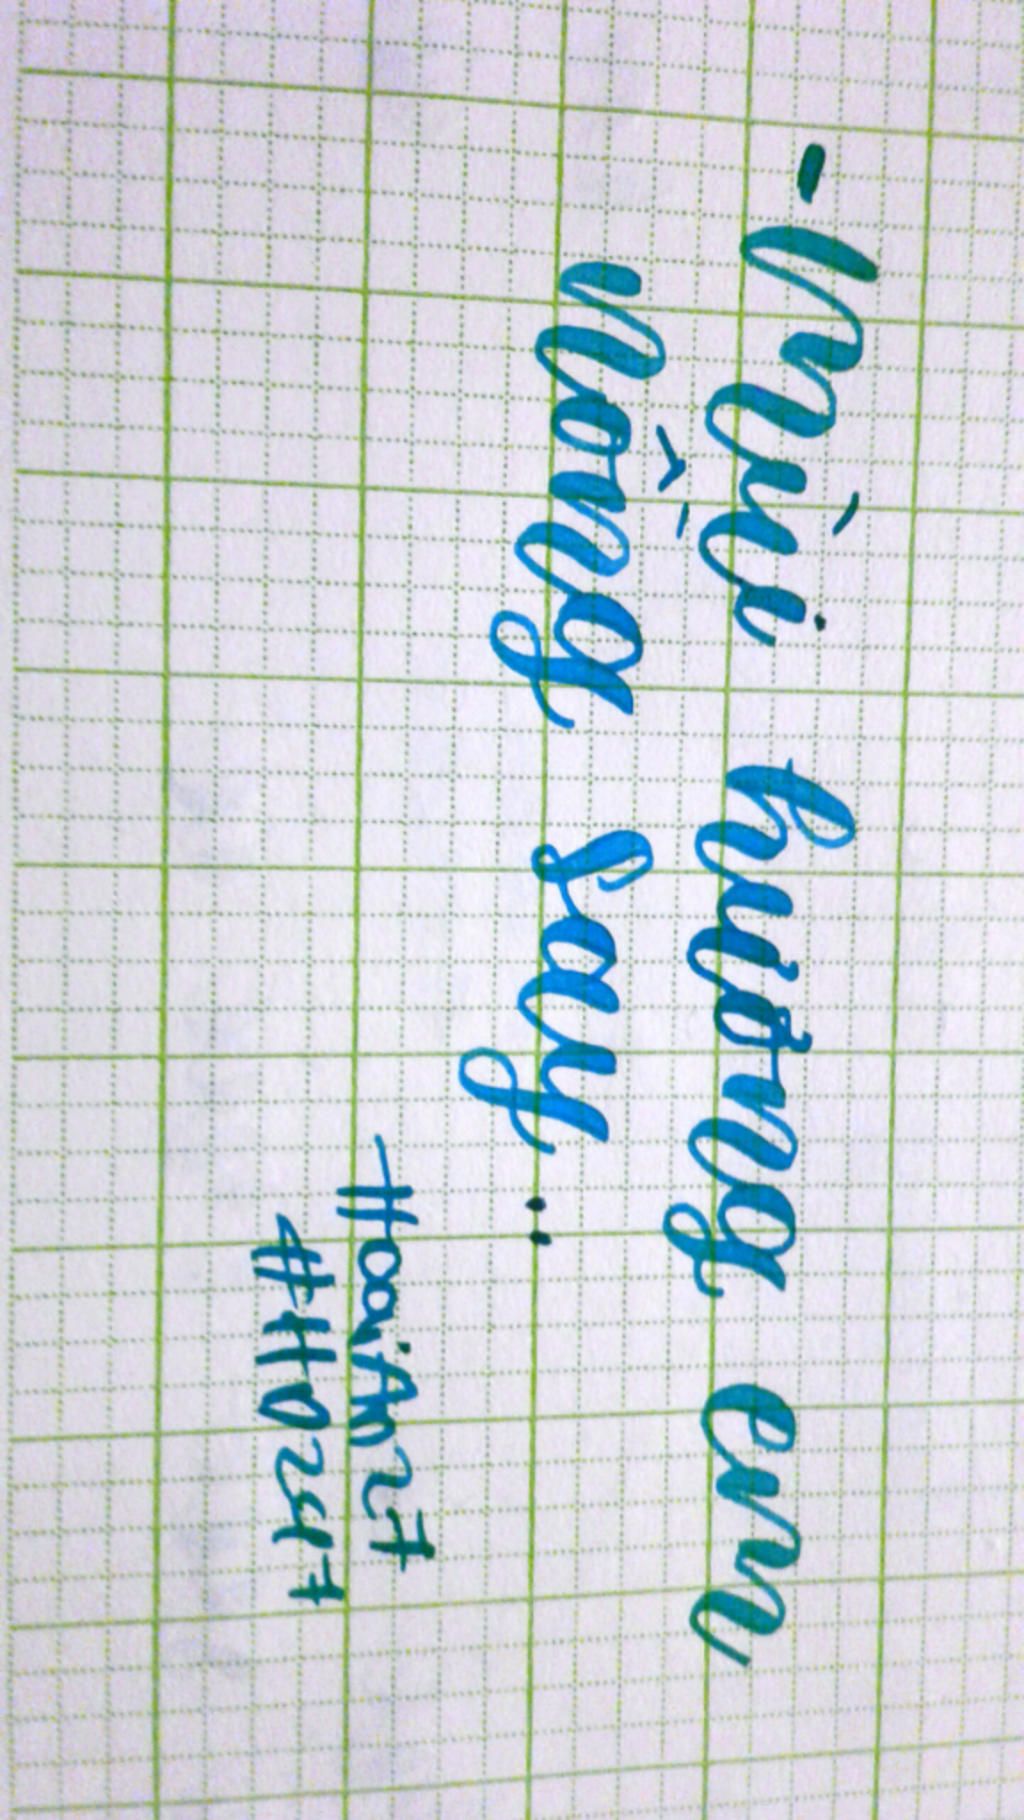 - Mùi hương em
nồng say..
HoaiAn27
#HD247